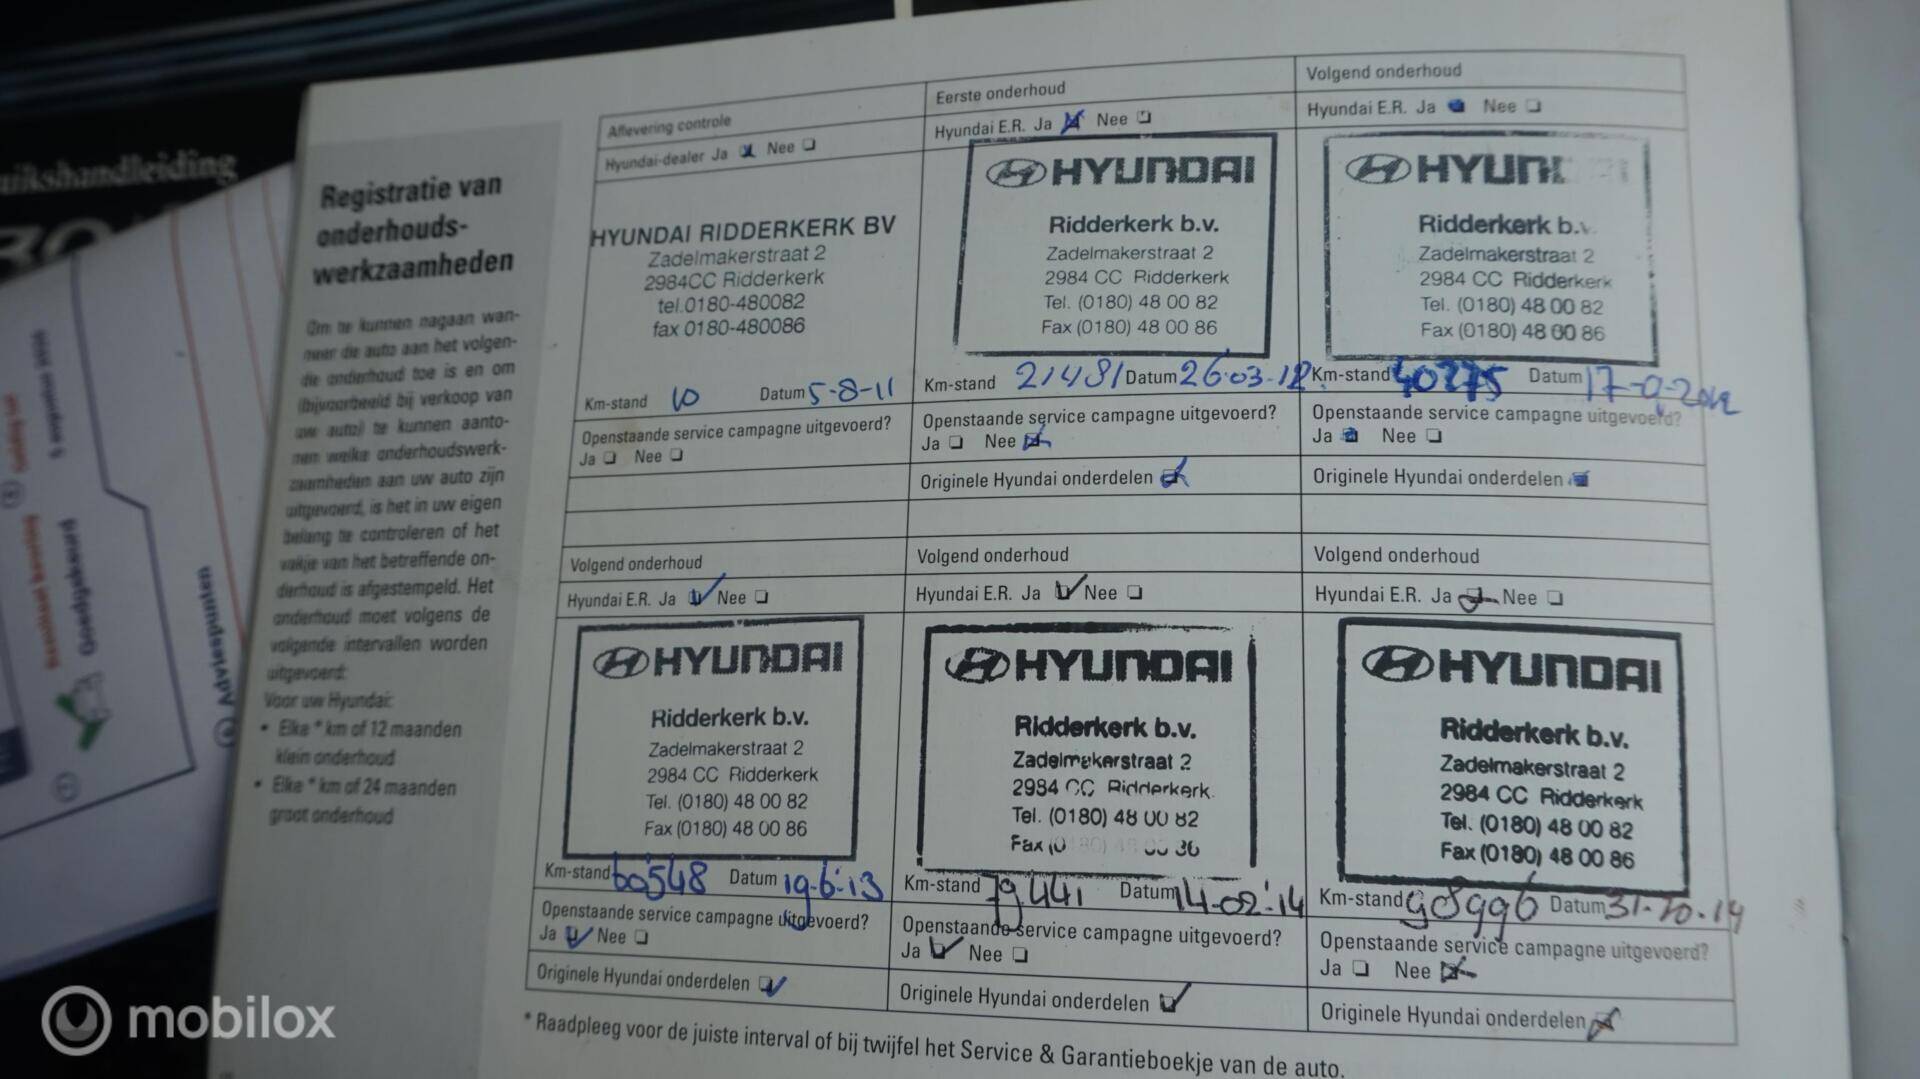 uikshandleiding
Registratie van
onderhouds-
werkzaamheden
Om te kunnen nagaan wan-
neer de auto aan het volgen-
de onderhoud toe is en om
(bijvoorbeeld bij verkoop van
uw auto) te kunnen aanto-
nen welke onderhoudswerk-
zaamheden aan uw auto zijn
uitgevoerd, is het in uw eigen
belang te controleren of het
vakje van het betreffende on-
derhoud is afgestempeld. Het
onderhoud moet volgens de
volgende intervallen worden
uitgevoerd:
Voor uw Hyundai:
• Elke * km of 12 maanden
klein onderhoud
• Elke * km of 24 maanden
groot onderhoud
Aflevering controle
Hyundai-dealer Ja Nee
HYUNDAI RIDDERKERK BV
Zadelmakerstraat 2
2984CC Ridderkerk
tel.0180-480082
fax 0180-480086
Km-stand 10 Datum 5-8-11
Openstaande service campagne uitgevoerd?
Ja Nee
Eerste onderhoud
Hyundai E.R. Ja Nee
HYUNDAI
Ridderkerk b.v.
Zadelmakerstraat 2
2984 CC Ridderkerk
Tel. (0180) 48 00 82
Fax (0180) 48 00 86
Km-stand 21481 Datum 26-03-12
Openstaande service campagne uitgevoerd?
Ja Nee
Originele Hyundai onderdelen
Volgend onderhoud
Hyundai E.R. Ja Nee
HYUN
Ridderkerk b.v.
Zadelmakerstraat 2
2984 CC Ridderkerk
Tel. (0180) 48 00 82
Fax (0180) 48 00 86
Km-stand 40275 Datum 17-9-2012
Openstaande service campagne uitgevoerd?
Ja Nee
Originele Hyundai onderdelen
Volgend onderhoud
Hyundai E.R. Ja Nee
HYUNDAI
Ridderkerk b.v.
Zadelmakerstraat 2
2984 CC Ridderkerk
Tel. (0180) 48 00 82
Fax (0180) 48 00 86
Km-stand 60548 Datum 19-6-13
Openstaande service campagne uitgevoerd?
Ja Nee
Originele Hyundai onderdelen
Volgend onderhoud
Hyundai E.R. Ja Nee
HYUNDAI
Ridderkerk b.v.
Zadelmakerstraat 2
2984 CC Ridderkerk
Tel. (0180) 48 00 82
Fax (0180) 48 00 86
Km-stand 79.441 Datum 14-02-'14
Openstaande service campagne uitgevoerd?
Ja Nee
Originele Hyundai onderdelen
Volgend onderhoud
Hyundai E.R. Ja Nee
HYUNDAI
Ridderkerk b.v.
Zadelmakerstraat 2
2984 CC Ridderkerk
Tel. (0180) 48 00 82
Fax (0180) 48 00 86
Km-stand 98996 Datum 31-10-14
Openstaande service campagne uitgevoerd?
Ja Nee
Originele Hyundai onderdelen
* Raadpleeg voor de juiste interval of bij twijfel het Service & Garantieboekje van de auto.
Goedgekeurd
Adviespunten
mobilox